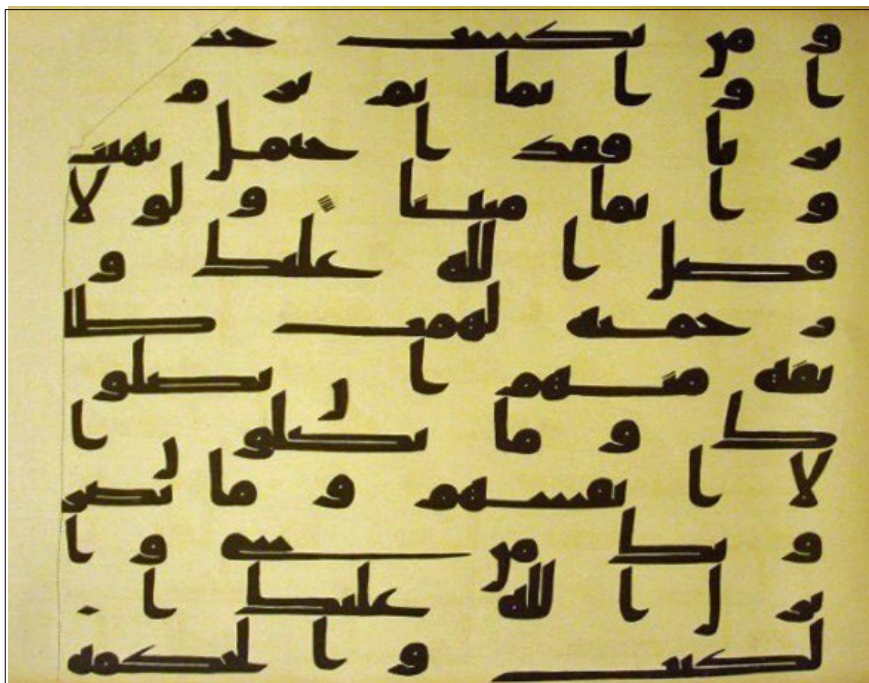 و من يكسب خطـ
ا و ا ثما ثم ير م
بر يا فقد ا حتمل بهتـ
و ا ثما مبينا و لو لا
فضل ا لله عليك و
ر حمته لهمت طا
ئفة منهم ا ن يضلو
ك و ما يضلو ن ا
لا ا نفسهم و ما يضر
و نك من شى و ا
نز ل ا لله عليك ا
لكتب و ا لحكمة